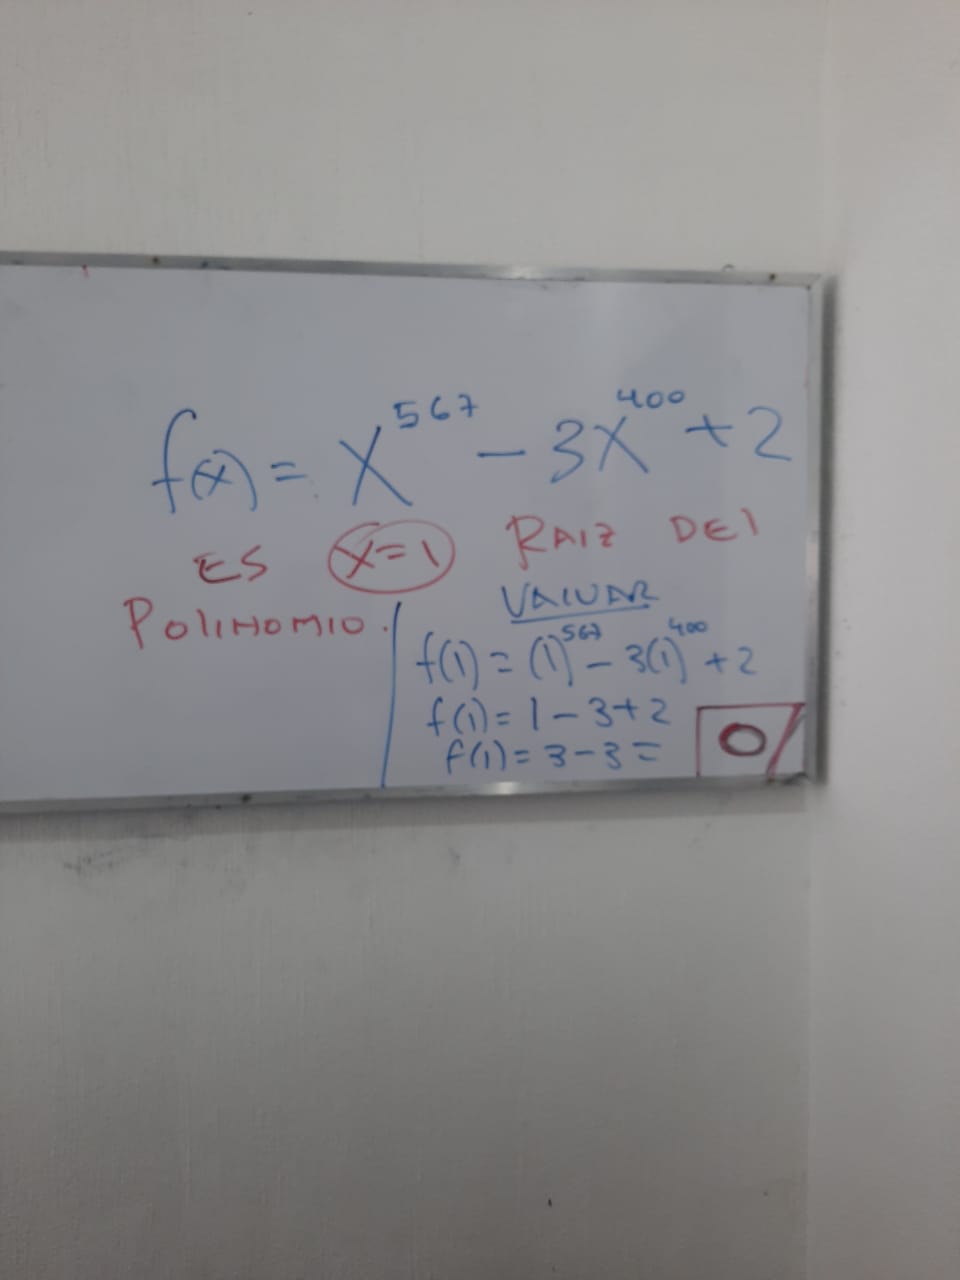 f(x) = x^567 - 3x^400 + 2
ES x=1 RAIZ DEl
POlINOMIO.
VAlUAR
f(1) = (1)^567 - 3(1)^400 + 2
f(1) = 1 - 3 + 2
f(1) = 3 - 3 = 0